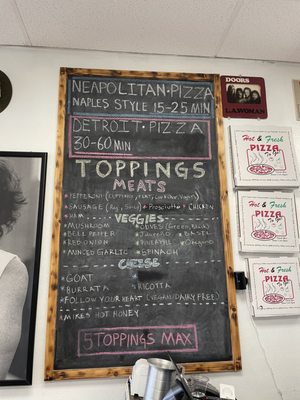 NEAPOLITAN·PIZZA
NAPLES STYLE 15-25 MIN
DETROIT·PIZZA
30-60 MIN
TOPPINGS
MEATS
PEPPERONI
SAUSAGE Prosciutto CHICKEN
HAM
VEGGIES
MUSHROOM OLIVES (Green, Black)
BELL PEPPER Jalapeño BASIL
RED ONION PINEAPPLE Oregano
MINCED GARLIC SPINACH
CHEESE
GOAT
BURRATA RICOTTA
FOLLOW YOUR HEART (VEGAN/DAIRY FREE)
MIKES HOT HONEY
5 TOPPINGS MAX
DOORS
L.A. WOMAN
Hot & Fresh
PIZZA
To Go!
Hot & Fresh
PIZZA
Hot & Fresh
PIZZA